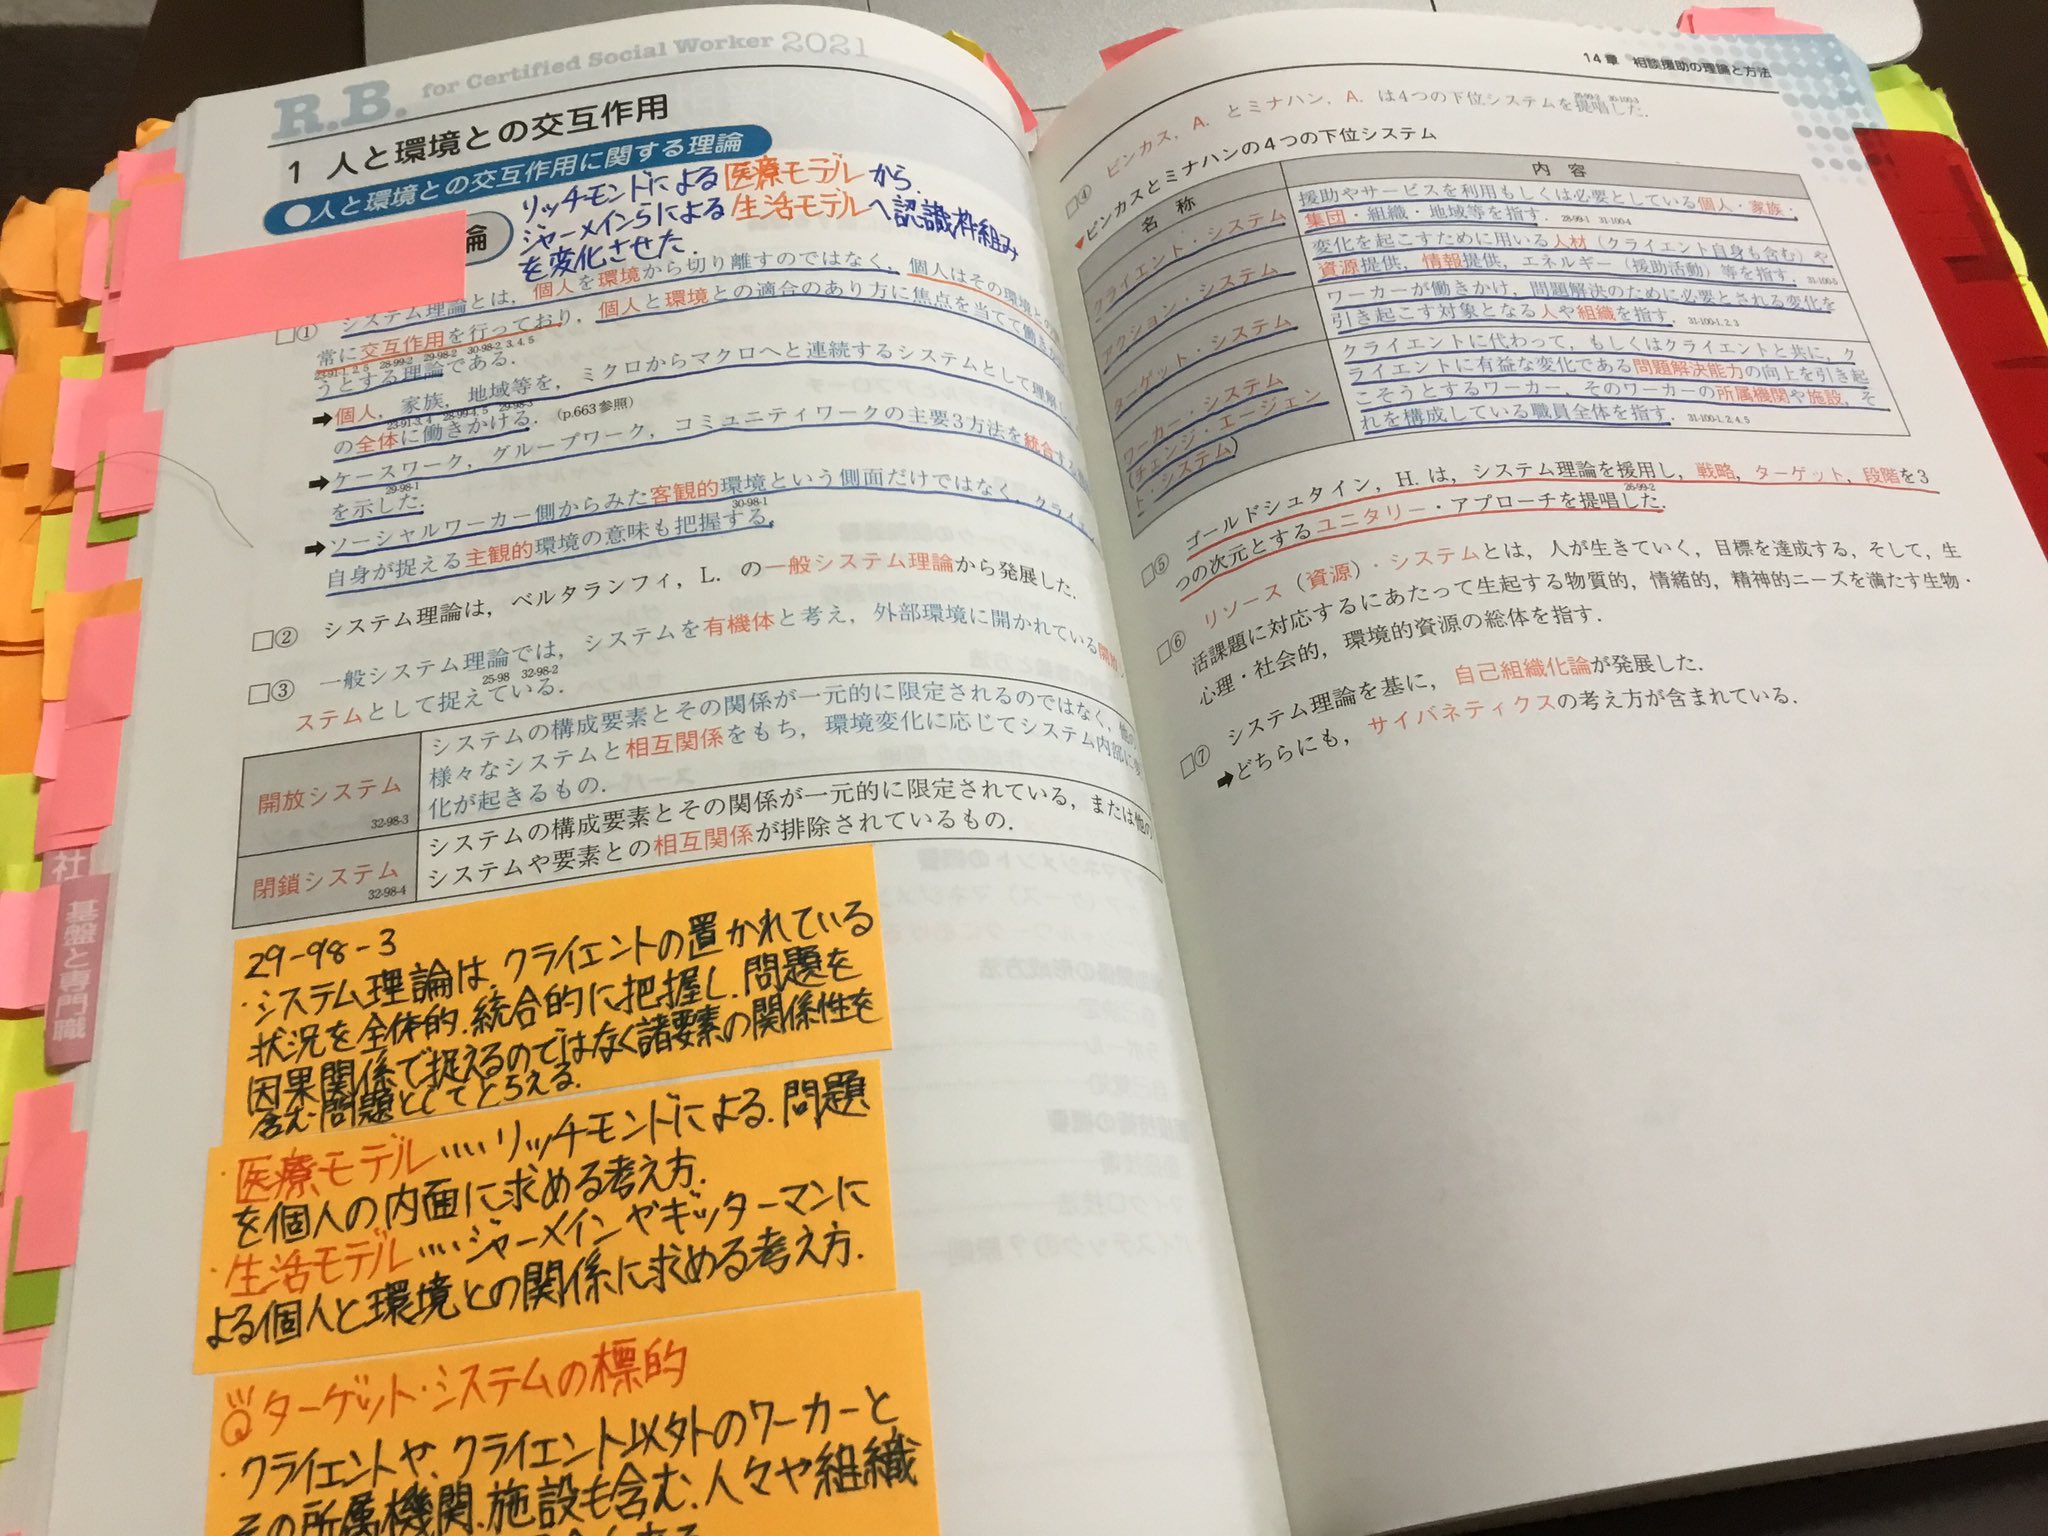 R.B. for Certified Social Worker 2021
1 人と環境との交互作用
●人と環境との交互作用に関する理論
論
リッチモンドによる医療モデルから、
ジャーメインらによる生活モデルへ認識枠組み
を変化させた.
□① システム理論とは，個人を環境から切り離すのではなく，個人はその環境との
常に交互作用を行っており，個人と環境との適合のあり方に焦点を当てて働き
うとする理論である．
➡個人，家族，地域等を，ミクロからマクロへと連続するシステムとして理解
の全体に働きかける．(p.663参照)
➡ケースワーク，グループワーク，コミュニティワークの主要3方法を統合する
を示した．
29-98-1
➡ソーシャルワーカー側からみた客観的環境という側面だけではなく，クライエ
自身が捉える主観的環境の意味も把握する．
30-98-1
□② システム理論は，ベルタランフィ，L. の一般システム理論から発展した．
□③ 一般システム理論では，システムを有機体と考え，外部環境に開かれている開放
25-98 32-98-2
ステムとして捉えている．
開放システム
32-98-3
システムの構成要素とその関係が一元的に限定されるのではなく，他の
様々なシステムと相互関係をもち，環境変化に応じてシステム内部に変
化が起きるもの．
閉鎖システム
32-98-4
システムの構成要素とその関係が一元的に限定されている，または他の
システムや要素との相互関係が排除されているもの．
29-98-3
・システム理論は、クライエントの置かれている
状況を全体的、統合的に把握し、問題を
因果関係で捉えるのではなく諸要素の関係性を
含む問題としてとらえる.
・医療モデル‥‥リッチモンドによる、問題
を個人の内面に求める考え方.
・生活モデル‥‥ジャーメインやギッターマンに
よる個人と環境との関係に求める考え方.
ターゲット・システムの標的
・クライエントや、クライエント以外のワーカーと
その所属機関、施設も含む、人々や組織
社
基盤と専門職
14章 相談援助の理論と方法
□④ ピンカス，A. とミナハン，A. は4つの下位システムを提唱した．
▼ピンカスとミナハンの4つの下位システム
名 称
内 容
クライエント・システム
援助やサービスを利用もしくは必要としている個人・家族・
集団・組織・地域等を指す．28-99-1 31-100-4
アクション・システム
変化を起こすために用いる人材（クライエント自身も含む）や
資源提供，情報提供，エネルギー（援助活動）等を指す．31-100-5
ターゲット・システム
ワーカーが働きかけ，問題解決のために必要とされる変化を
引き起こす対象となる人や組織を指す．31-100-1, 2, 3
ワーカー・システム
(チェンジ・エージェン
ト・システム)
クライエントに代わって，もしくはクライエントと共に，ク
ライエントに有益な変化である問題解決能力の向上を引き起
こそうとするワーカー，そのワーカーの所属機関や施設，そ
れを構成している職員全体を指す．31-100-1, 2, 4, 5
□⑤ ゴールドシュタイン，H. は，システム理論を援用し，戦略，ターゲット，段階を3
つの次元とするユニタリー・アプローチを提唱した．
□⑥ リソース（資源）・システムとは，人が生きていく，目標を達成する，そして，生
活課題に対応するにあたって生起する物質的，情緒的，精神的ニーズを満たす生物・
心理・社会的，環境的資源の総体を指す．
□⑦ システム理論を基に，自己組織化論が発展した．
➡どちらにも，サイバネティクスの考え方が含まれている．